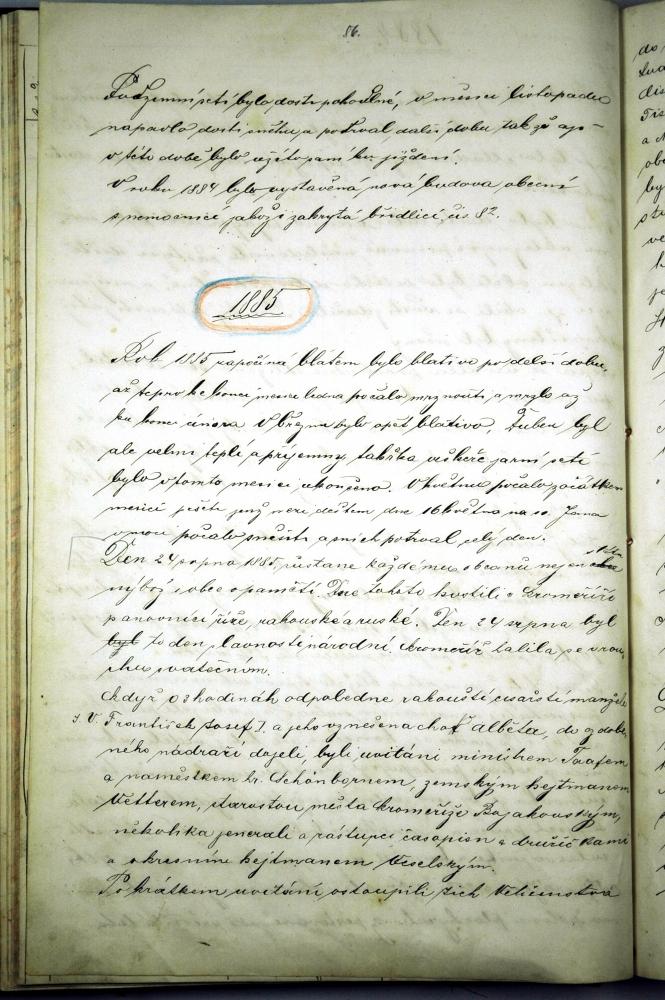 56.
Podzemní setí bylo dosti pohodlné, v měsíci listopadu
napadlo dosti sněhu a potrval další dobu tak že
v této době bylo užíto saní ku ježdení.
V roku 1884 bylo vystavěná nová budova obecní
z nemocnice jakož i zakrytá břidlicí, čís 82.
1885
Rok 1885 započíná blátem bylo blativo po delší dobu,
až teprv ke konci měsíce ledna počalo mrznouti a mrzlo až
ku konci února. V březnu bylo opět blativo, Duben byl
ale velmi teplí a příjemný, takřka veškeré jarní setí
bylo v tomto měsíci ukončeno. V květnu počalo začátkem
měsíce deštem dne 16 května na sv. Jana
v noci počalo sněžiti a sních potrval celý den.
Den 24 srpna 1885, zustane každému obcanů nejen
nýbrž i obce v paměti. Dne tohoto hostili v Kroměříži
panovníci říše rakouské a ruské. Den 24 srpna byl
byl to den slavnosti národní. Kroměříž halila se v rou-
chu svatečním.
Když o hodináh odpoledne rakouští císařští manželé
J. V. František Josef I. a jeho vznešena choť Alběta, do ozdobe-
ného nádraží dojeli, byli uvítáni ministrem Taafem
a naměstkem hr. Schönbornem, zemským hejtmanem
Vetterem, starostou města Kroměříže Bojakouským,
několika jenerali a zástupci časopisu a družič kami
a okresním hejtmanem Veselským.
Po krátkem uvítání ostoupili Jich Veličenstva